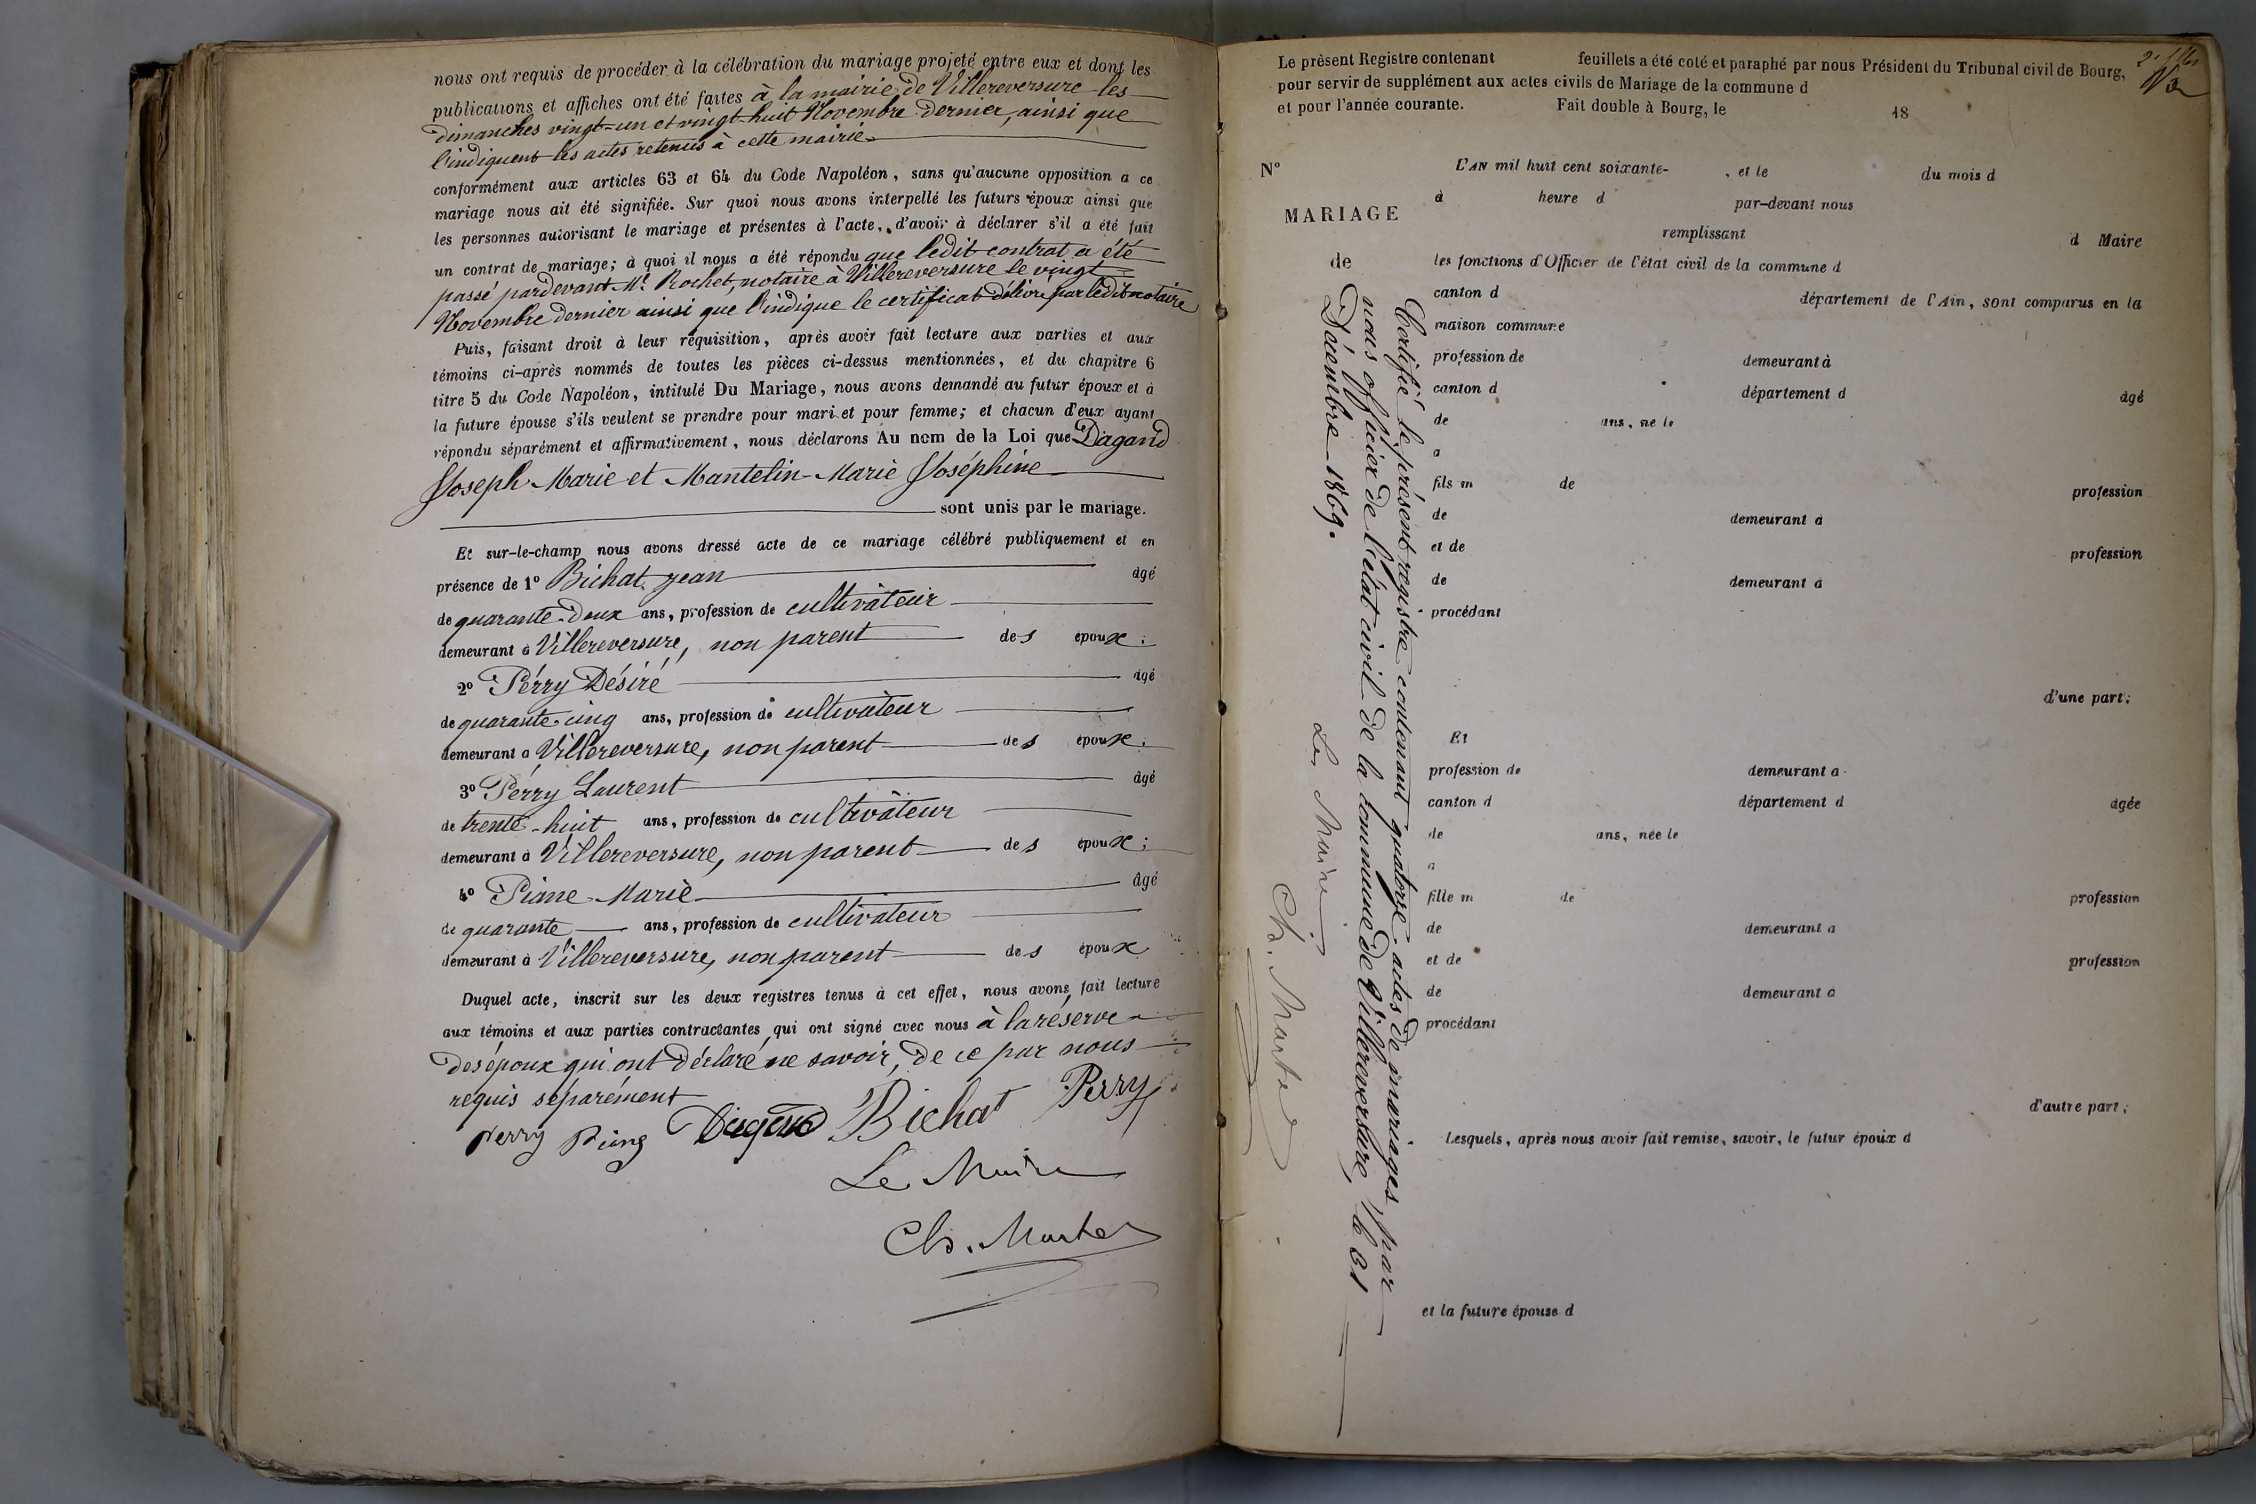 nous ont requis de procéder à la célébration du mariage projeté entre eux et dont les
publications et affiches ont été faites à la mairie de Villereversure les
dimanches vingt-un et vingt-huit Novembre dernier, ainsi que
l'indiquent les actes retenus à cette mairie
conformément aux articles 63 et 64 du Code Napoléon, sans qu'aucune opposition a ce
mariage nous ait été signifiée. Sur quoi nous avons interpellé les futurs époux ainsi que
les personnes autorisant le mariage et présentes à l'acte, d'avoir à déclarer s'il a été fait
un contrat de mariage; à quoi il nous a été répondu que ledit contrat a été
passé pardevant Mᵉ Rochet, notaire à Villereversure le vingt
Novembre dernier ainsi que l'indique le certificat délivré par ledit notaire
Puis, faisant droit à leur réquisition, après avoir fait lecture aux parties et aux
témoins ci-après nommés de toutes les pièces ci-dessus mentionnées, et du chapitre 6
titre 5 du Code Napoléon, intitulé Du Mariage, nous avons demandé au futur époux et à
la future épouse s'ils veulent se prendre pour mari et pour femme; et chacun d'eux ayant
répondu séparément et affirmativement, nous déclarons Au nom de la Loi que Dagand
Joseph Marie et Mantelin Marie Joséphine
sont unis par le mariage.
Et sur-le-champ nous avons dressé acte de ce mariage célébré publiquement et en
présence de 1º Bichat Jean âgé
de quarante-deux ans, profession de cultivateur
demeurant à Villereversure, non parent des époux;
2º Pérry Désiré âgé
de quarante-cinq ans, profession de cultivateur
demeurant a Villereversure, non parent des époux;
3º Pérry Laurent âgé
de trente-huit ans, profession de cultivateur
demeurant à Villereversure, non parent des époux;
4º Piane Marie âgé
de quarante ans, profession de cultivateur
demeurant à Villereversure, non parent des époux
Duquel acte, inscrit sur les deux registres tenus à cet effet, nous avons fait lecture
aux témoins et aux parties contractantes qui ont signé avec nous à la réserve
des époux qui ont déclaré ne savoir, de ce par nous
requis séparément
Perry Dagand Bichat Perry
Le Maire
Le présent Registre contenant feuillets a été coté et paraphé par nous Président du Tribunal civil de Bourg,
pour servir de supplément aux actes civils de Mariage de la commune d
et pour l'année courante. Fait double à Bourg, le 18
Nº
MARIAGE
de
L'AN mil huit cent soixante- , et le du mois d
à heure d par-devant nous
remplissant d Maire
les fonctions d'Officier de l'état civil de la commune d
canton d département de l'Ain, sont comparus en la
maison commune
profession de demeurant à
canton d département d âgé
de ans, né le
a
fils m de profession
de demeurant à
et de profession
de demeurant à
procédant
d'une part;
Et
profession de demeurant a
canton d département d âgée
de ans, née le
a
fille m de profession
de demeurant a
et de profession
de demeurant a
procédant
d'autre part;
Lesquels, après nous avoir fait remise, savoir, le futur époux d
et la future épouse d
Certifié le présent registre contenant quatorze actes de mariages, par
nous officier de l'état civil de la commune de Villereversure, le 31
Décembre 1869.
Le Maire